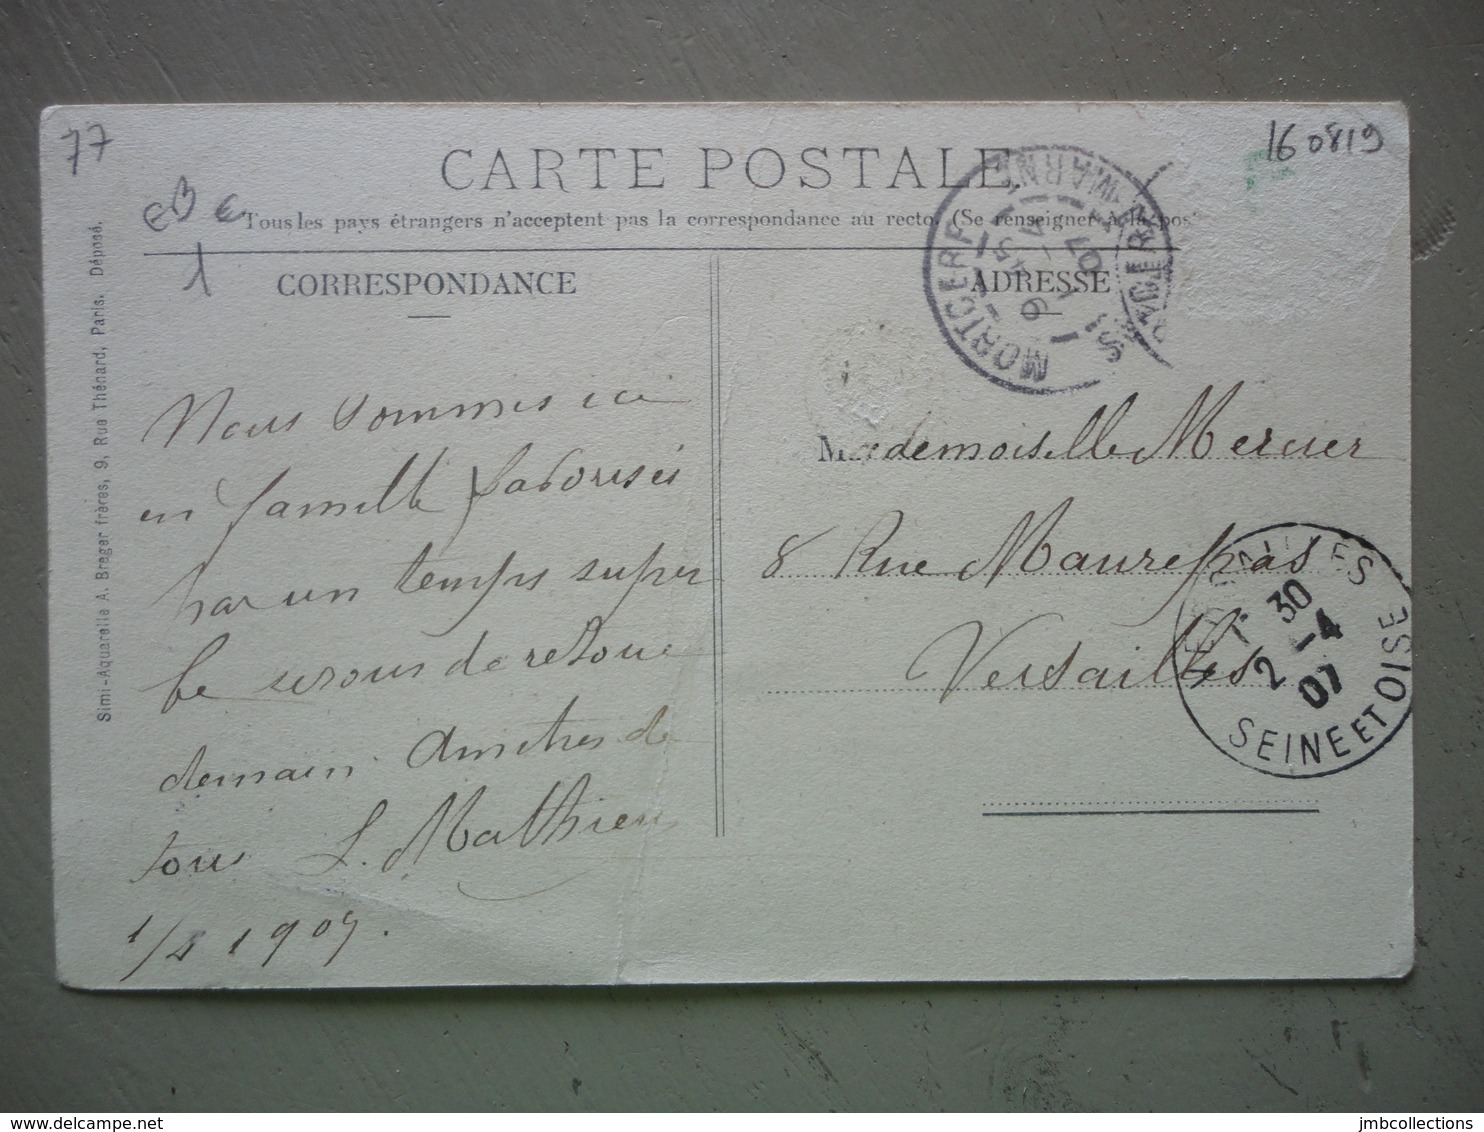 77
160819
CARTE POSTALE
Tous les pays étrangers n'acceptent pas la correspondance au recto. (Se renseigner à la pos
CORRESPONDANCE
ADRESSE
Simi-Aquarelle A. Breger frères, 9, Rue Thénard, Paris. Déposé.
MORTCERF
9 45
07
Nous sommes ici
en famille favorisés
par un temps super
be serons de retour
demain Amitiés de
tous L. Mathieu
1/4 1907.
Mademoiselle Mercier
8 Rue Maurepas
Versailles
VERSAILLES
1 30
2 - 4
07
SEINE ET OISE
delcampe.net
jmbcollections